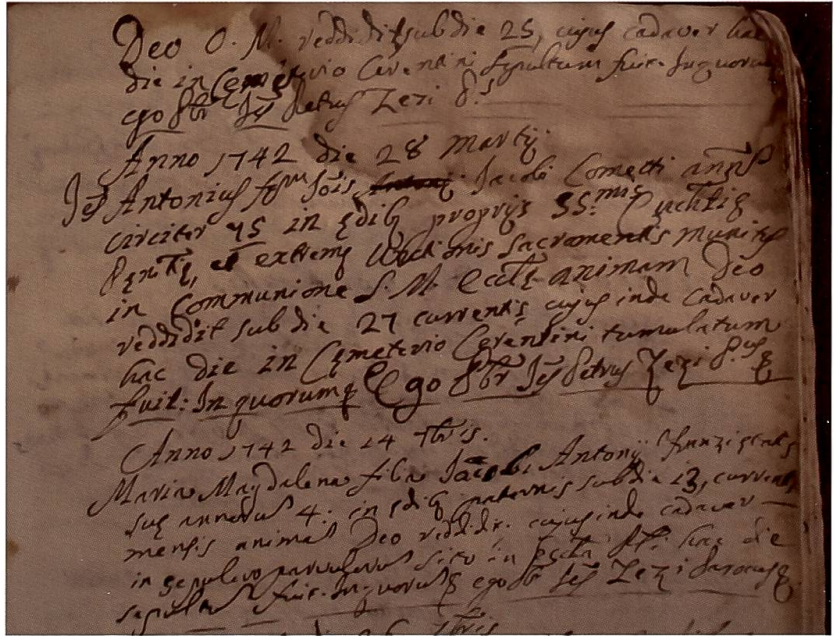 Deo O. M. reddidit sub die 25, cujus cadaver hac
die in Cemeterio Cerentini sepultum fuit. In quorum
ego Pbr Jes Petrus Zezi P.s
Anno 1742 die 28 martij
Jes Antonius Jois Jacobi Cometti anns
circiter 75 in ędibq proprijs SS.mis
et extremę Unctionis sacramentis munitus
in Communione S. M. Eccle animam Deo
reddidit sub die 27 currentis cujus inde cadaver
hac die in Cęmeterio Cerentini tumulatum
fuit. In quorumq Ego Pbr Jes Petrus Zezi P.
Anno 1742 die 14 7bris.
Maria Magdalena filia Jacobi Antonij
suę annorum 4. in ędibq paternis sub die 13, currentis
mensis animam Deo reddidit cujus inde cadaver
in sepulcro parvulorum sito in hac die
sepultum fuit. In quorumq ego Pbr Jes Zezi Parocus
7bris